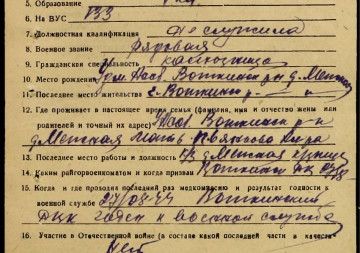 5. Образование
6. На ВУС 133
7. Должностная квалификация не служила
8. Военное звание Рядовая
9. Гражданская специальность
10. Место рождения Удм. Асср. Воткински р-н д.
11. Последнее место жительства с. Воткински р-
12. Где проживает в настоящее время семья (фамилия, имя и отчество жены или
родителей и точный их адрес) Асср. Воткински р-н
мать
13. Последнее место работы и должность
14. Каким райгорвоенкоматом и когда призван Воткински
15. Когда и где проходил последний раз медкомиссию и результат годности к
военной службе 27/08-44 Воткинский
РВК годен к военной службе
16. Участие в Отечественной войне (в составе какой последней части в качестве
Нет